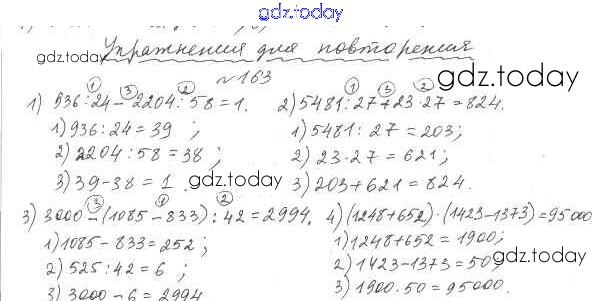 gdz.today
Упражнения для повторения
gdz.today
№163
gdz.today
① ③ ②
1) 936:24-2204:58=1.
① ③ ②
2) 5481:27+23·27=824.
1) 936:24=39;
1) 5481:27=203;
2) 2204:58=38;
2) 23·27=621;
3) 39-38=1.
gdz.today
3) 203+621=824.
③ ① ②
3) 3000-(1085-833):42=2994.
4) (1248+652)·(1423-1373)=95000
1) 1085-833=252;
1) 1248+652=1900;
gdz.today
gdz.today
2) 525:42=6;
2) 1423-1373=50;
3) 3000-6=2994
3) 1900·50=95000.